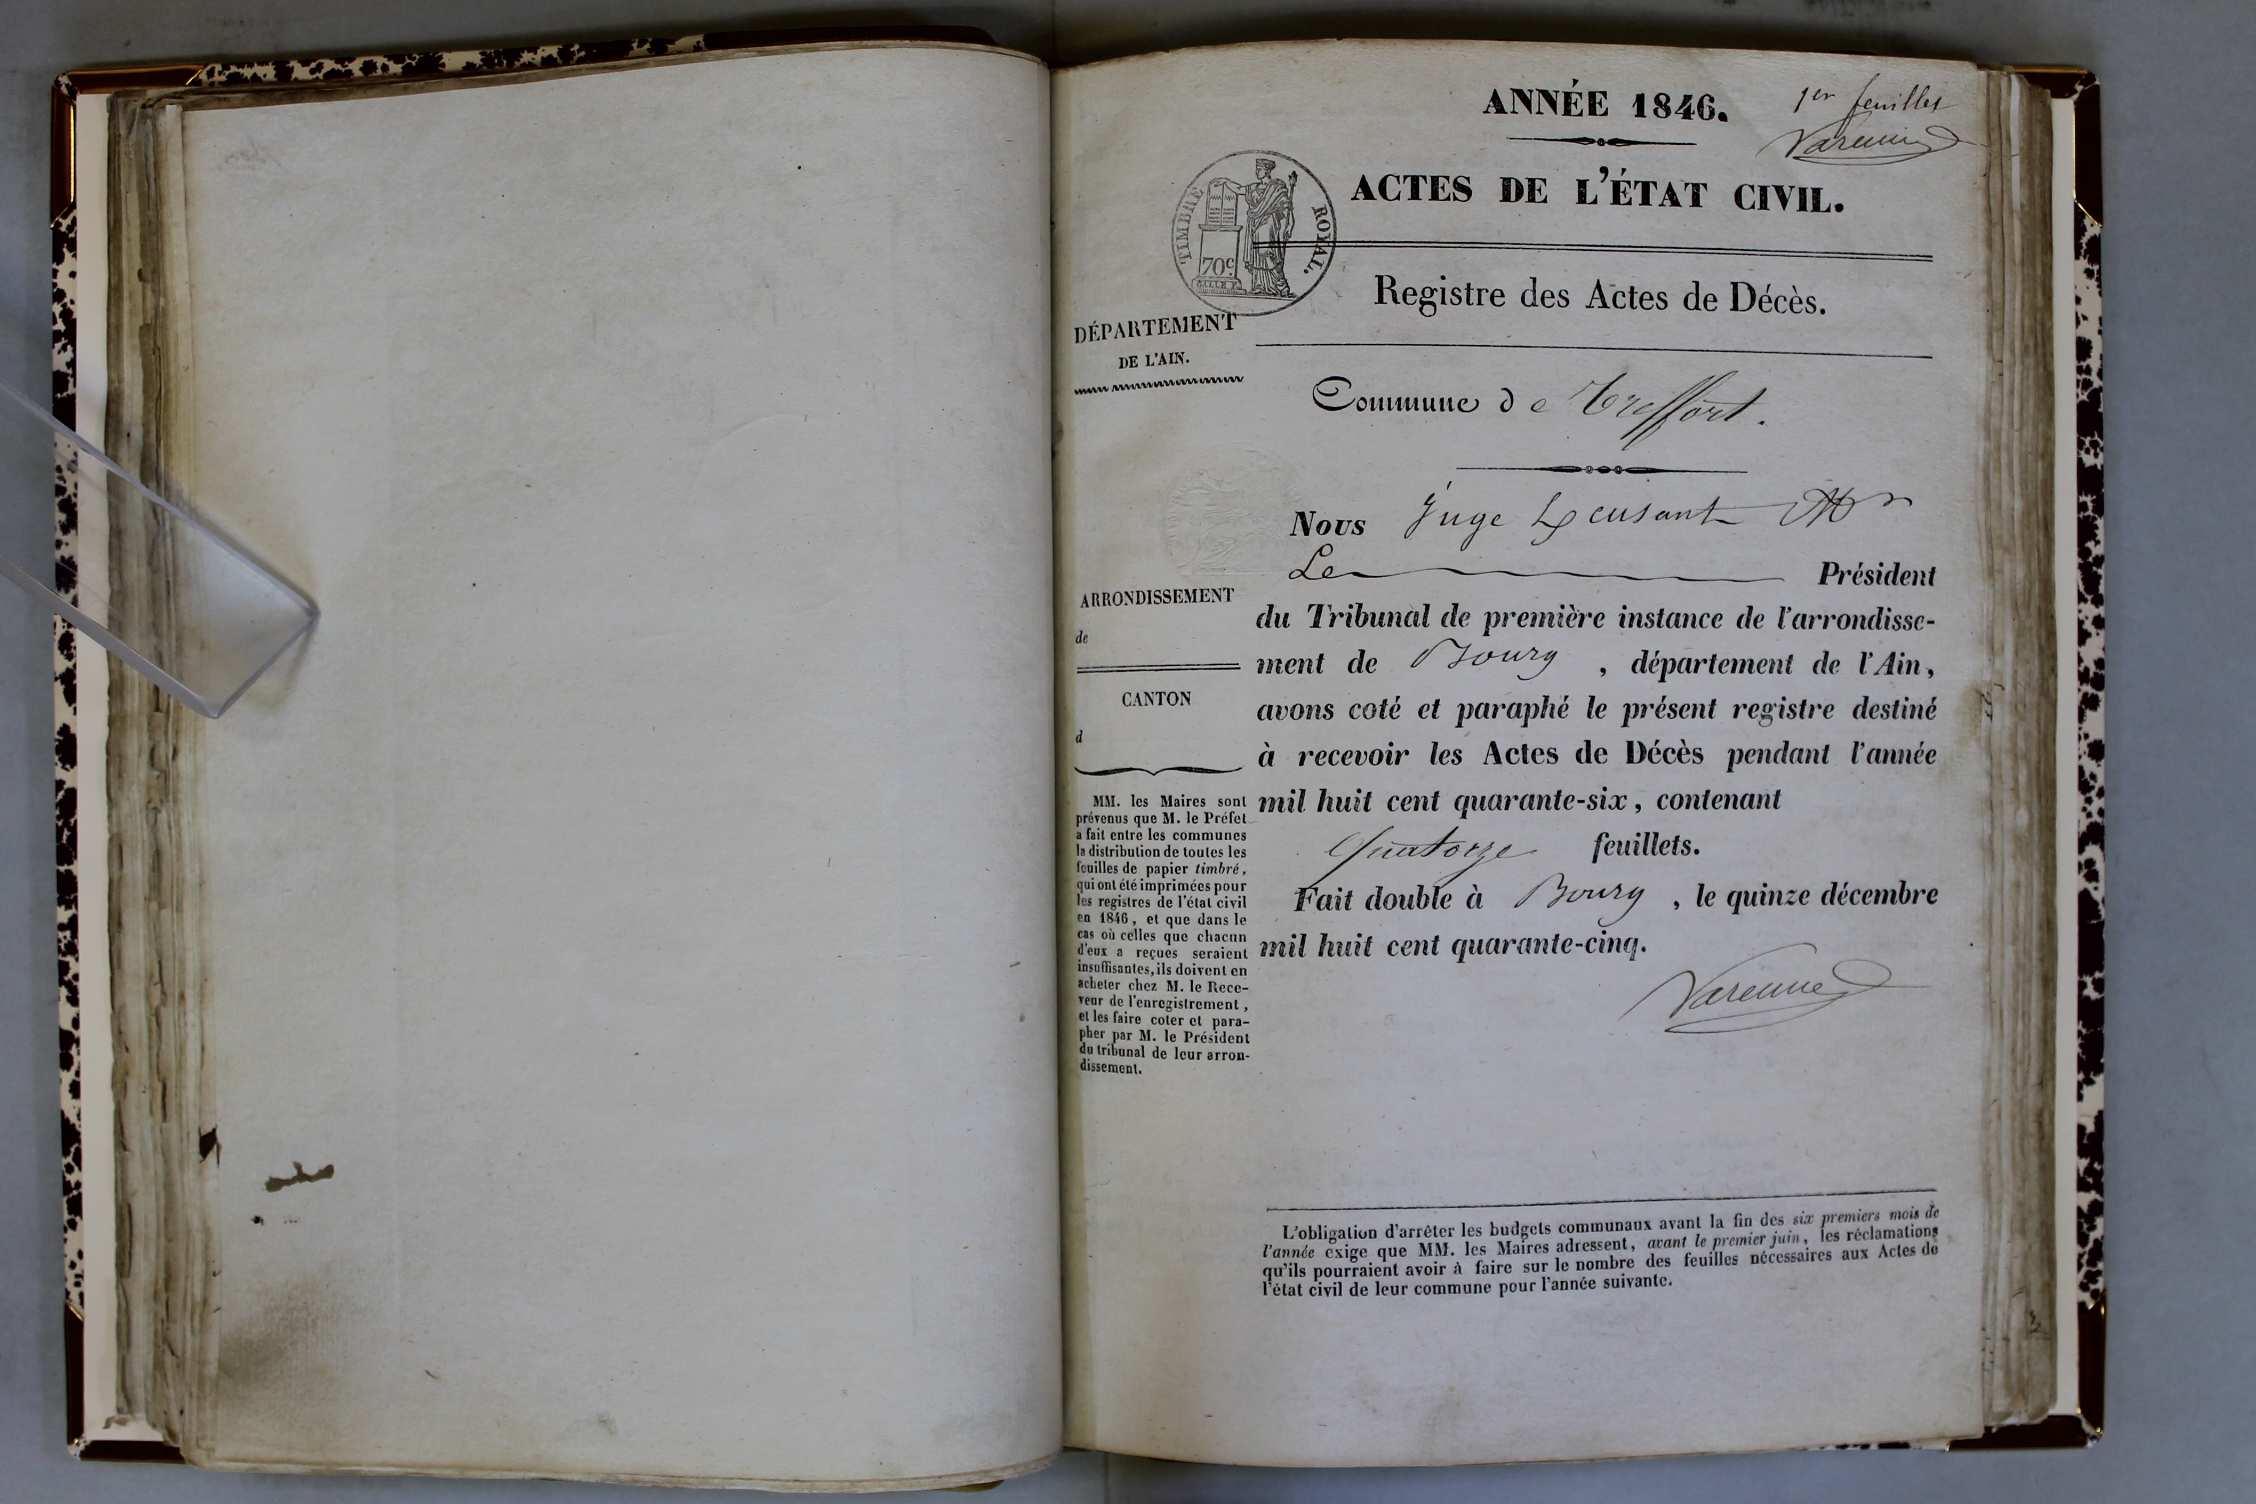 ANNÉE 1846.
1er feuillet
Varenne
ACTES DE L'ÉTAT CIVIL.
TIMBRE ROYAL.
70c
Registre des Actes de Décès.
DÉPARTEMENT
DE L'AIN.
Commune de Treffort.
ARRONDISSEMENT
de
CANTON
d
MM. les Maires sont
prévenus que M. le Préfet
a fait entre les communes
la distribution de toutes les
feuilles de papier timbré,
qui ont été imprimées pour
les registres de l'état civil
en 1846, et que dans le
cas où celles que chacun
d'eux a reçues seraient
insuffisantes, ils doivent en
acheter chez M. le Rece-
veur de l'enregistrement,
et les faire coter et para-
pher par M. le Président
du tribunal de leur arron-
dissement.
Nous Juge Mr
Le Président
du Tribunal de première instance de l'arrondisse-
ment de Bourg, département de l'Ain,
avons coté et paraphé le présent registre destiné
à recevoir les Actes de Décès pendant l'année
mil huit cent quarante-six, contenant
Quatorze feuillets.
Fait double à Bourg, le quinze décembre
mil huit cent quarante-cinq.
Varenne
L'obligation d'arrêter les budgets communaux avant la fin des six premiers mois de
l'année exige que MM. les Maires adressent, avant le premier juin, les réclamations
qu'ils pourraient avoir à faire sur le nombre des feuilles nécessaires aux Actes de
l'état civil de leur commune pour l'année suivante.